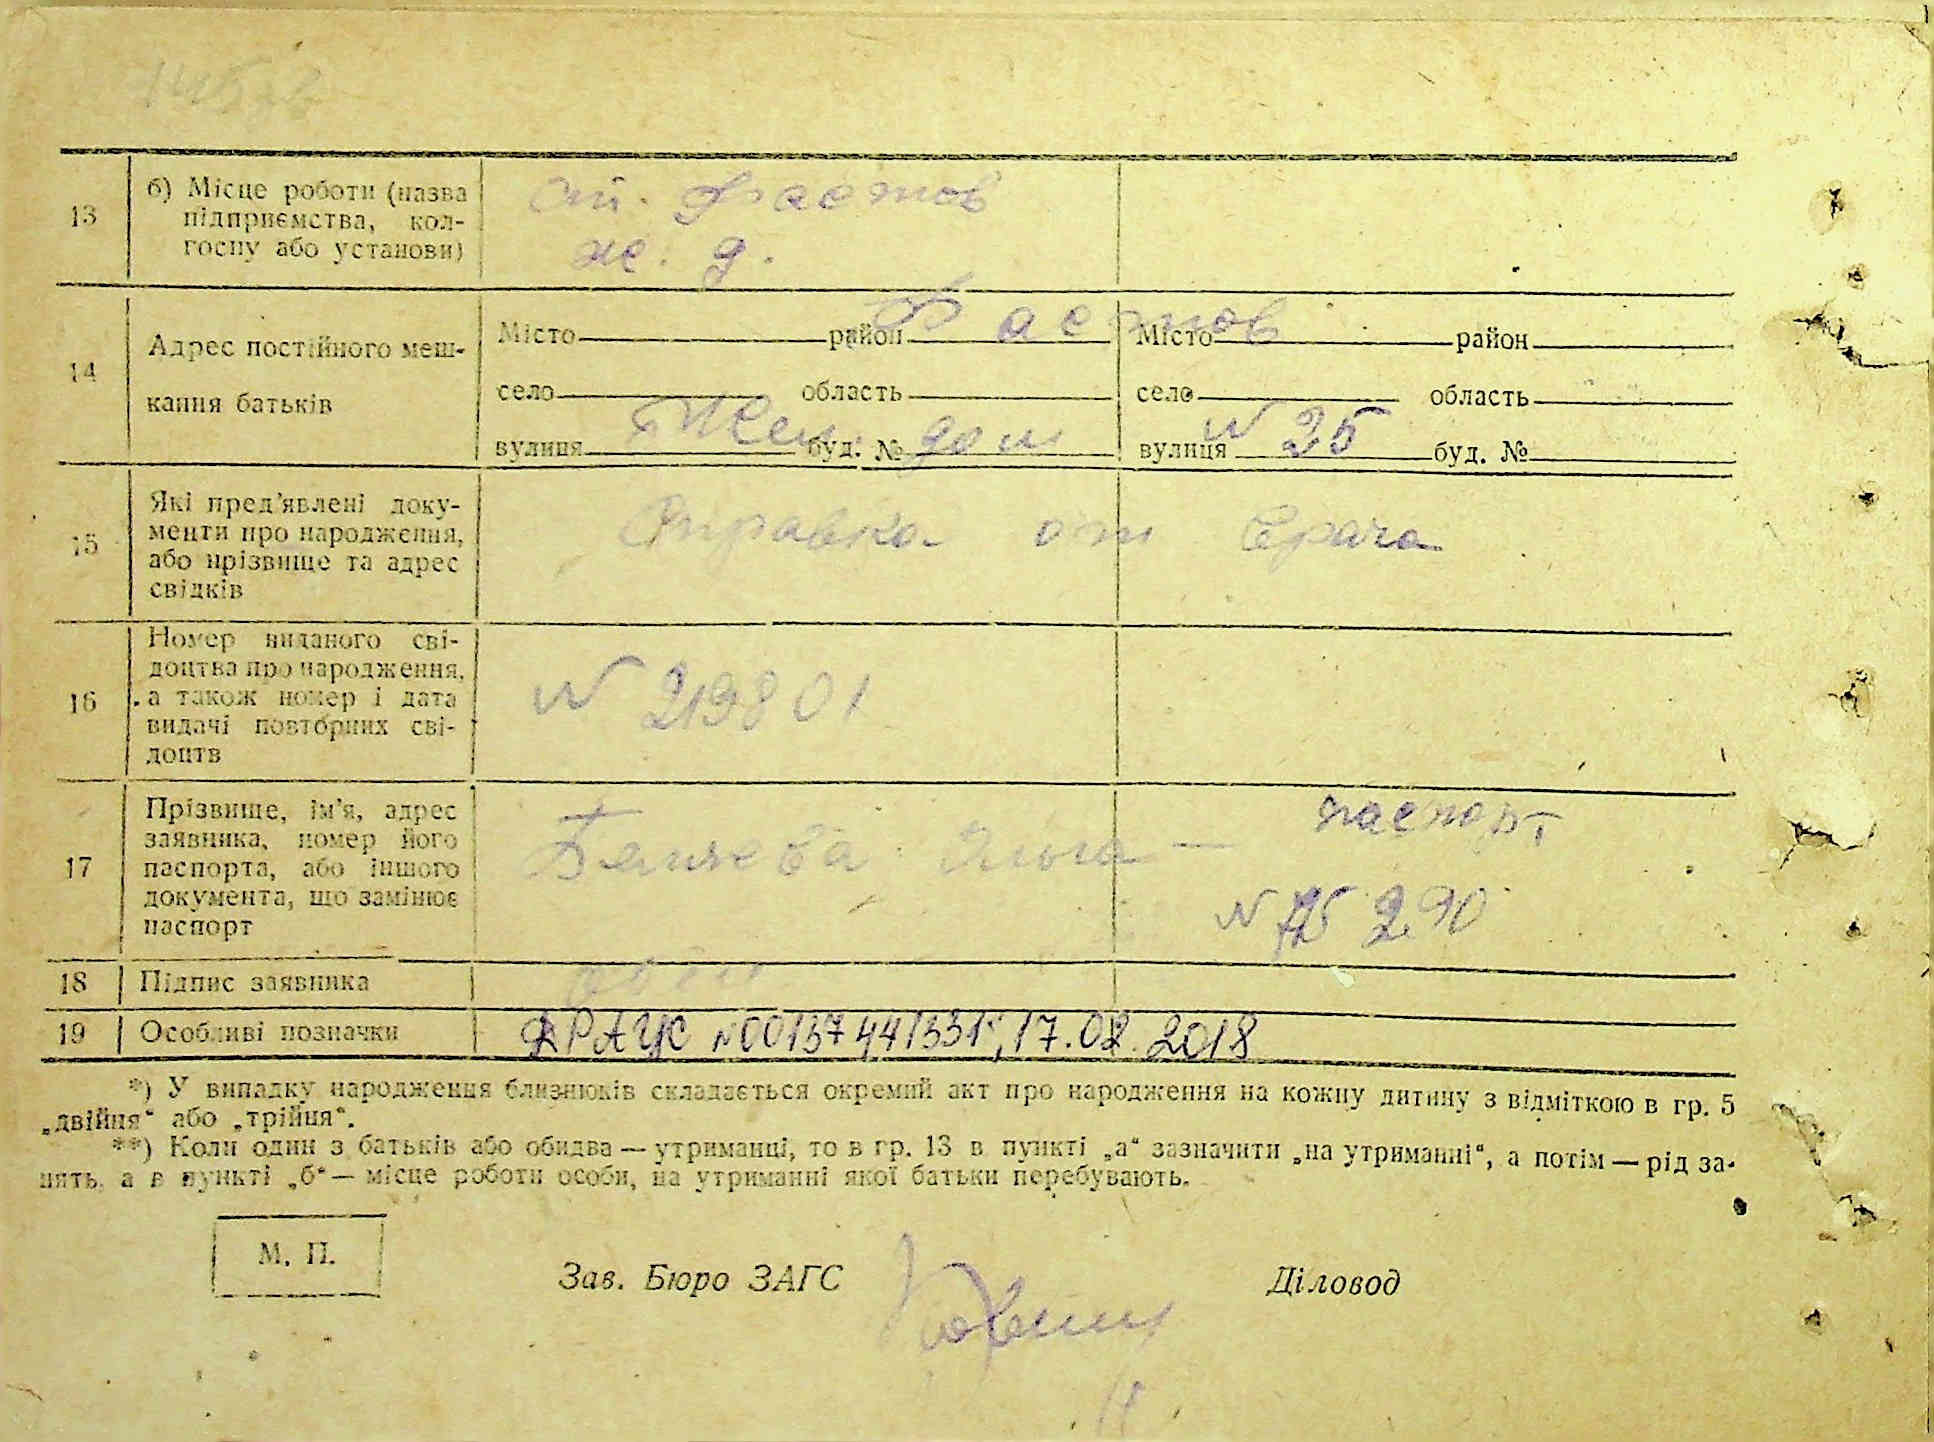 13
б) Місце роботи (назва
підприємства, кол-
госпу або установи)
ст. Фастов
ж. д.
14
Адрес постійного меш-
кання батьків
Фастов
Місто район
село область
вулиця буд. №
дом
Місто район
село область
вулиця буд. №
N 25
15
Які пред'явлені доку-
менти про народження,
або прізвище та адрес
свідків
Справка от врача
16
Номер виданого сві-
доцтва про народження,
а також номер і дата
видачі повторних сві-
доцтв
N 219801
17
Прізвище, ім'я, адрес
заявника, номер його
паспорта, або іншого
документа, що замінює
паспорт
паспорт
18
Підпис заявника
19
Особливі позначки
ДРАЦС №00137441331, 17.02.2018
*) У випадку народження близнюків складається окремий акт про народження на кожну дитину з відміткою в гр. 5
„двійня“ або „трійня“.
**) Коли один з батьків або обидва — утриманці, то в гр. 13 в пункті „а“ зазначити „на утриманні“, а потім — рід за-
нять, а в пункті „б“ — місце роботи особи, на утриманні якої батьки перебувають.
М. П.
Зав. Бюро ЗАГС
Діловод